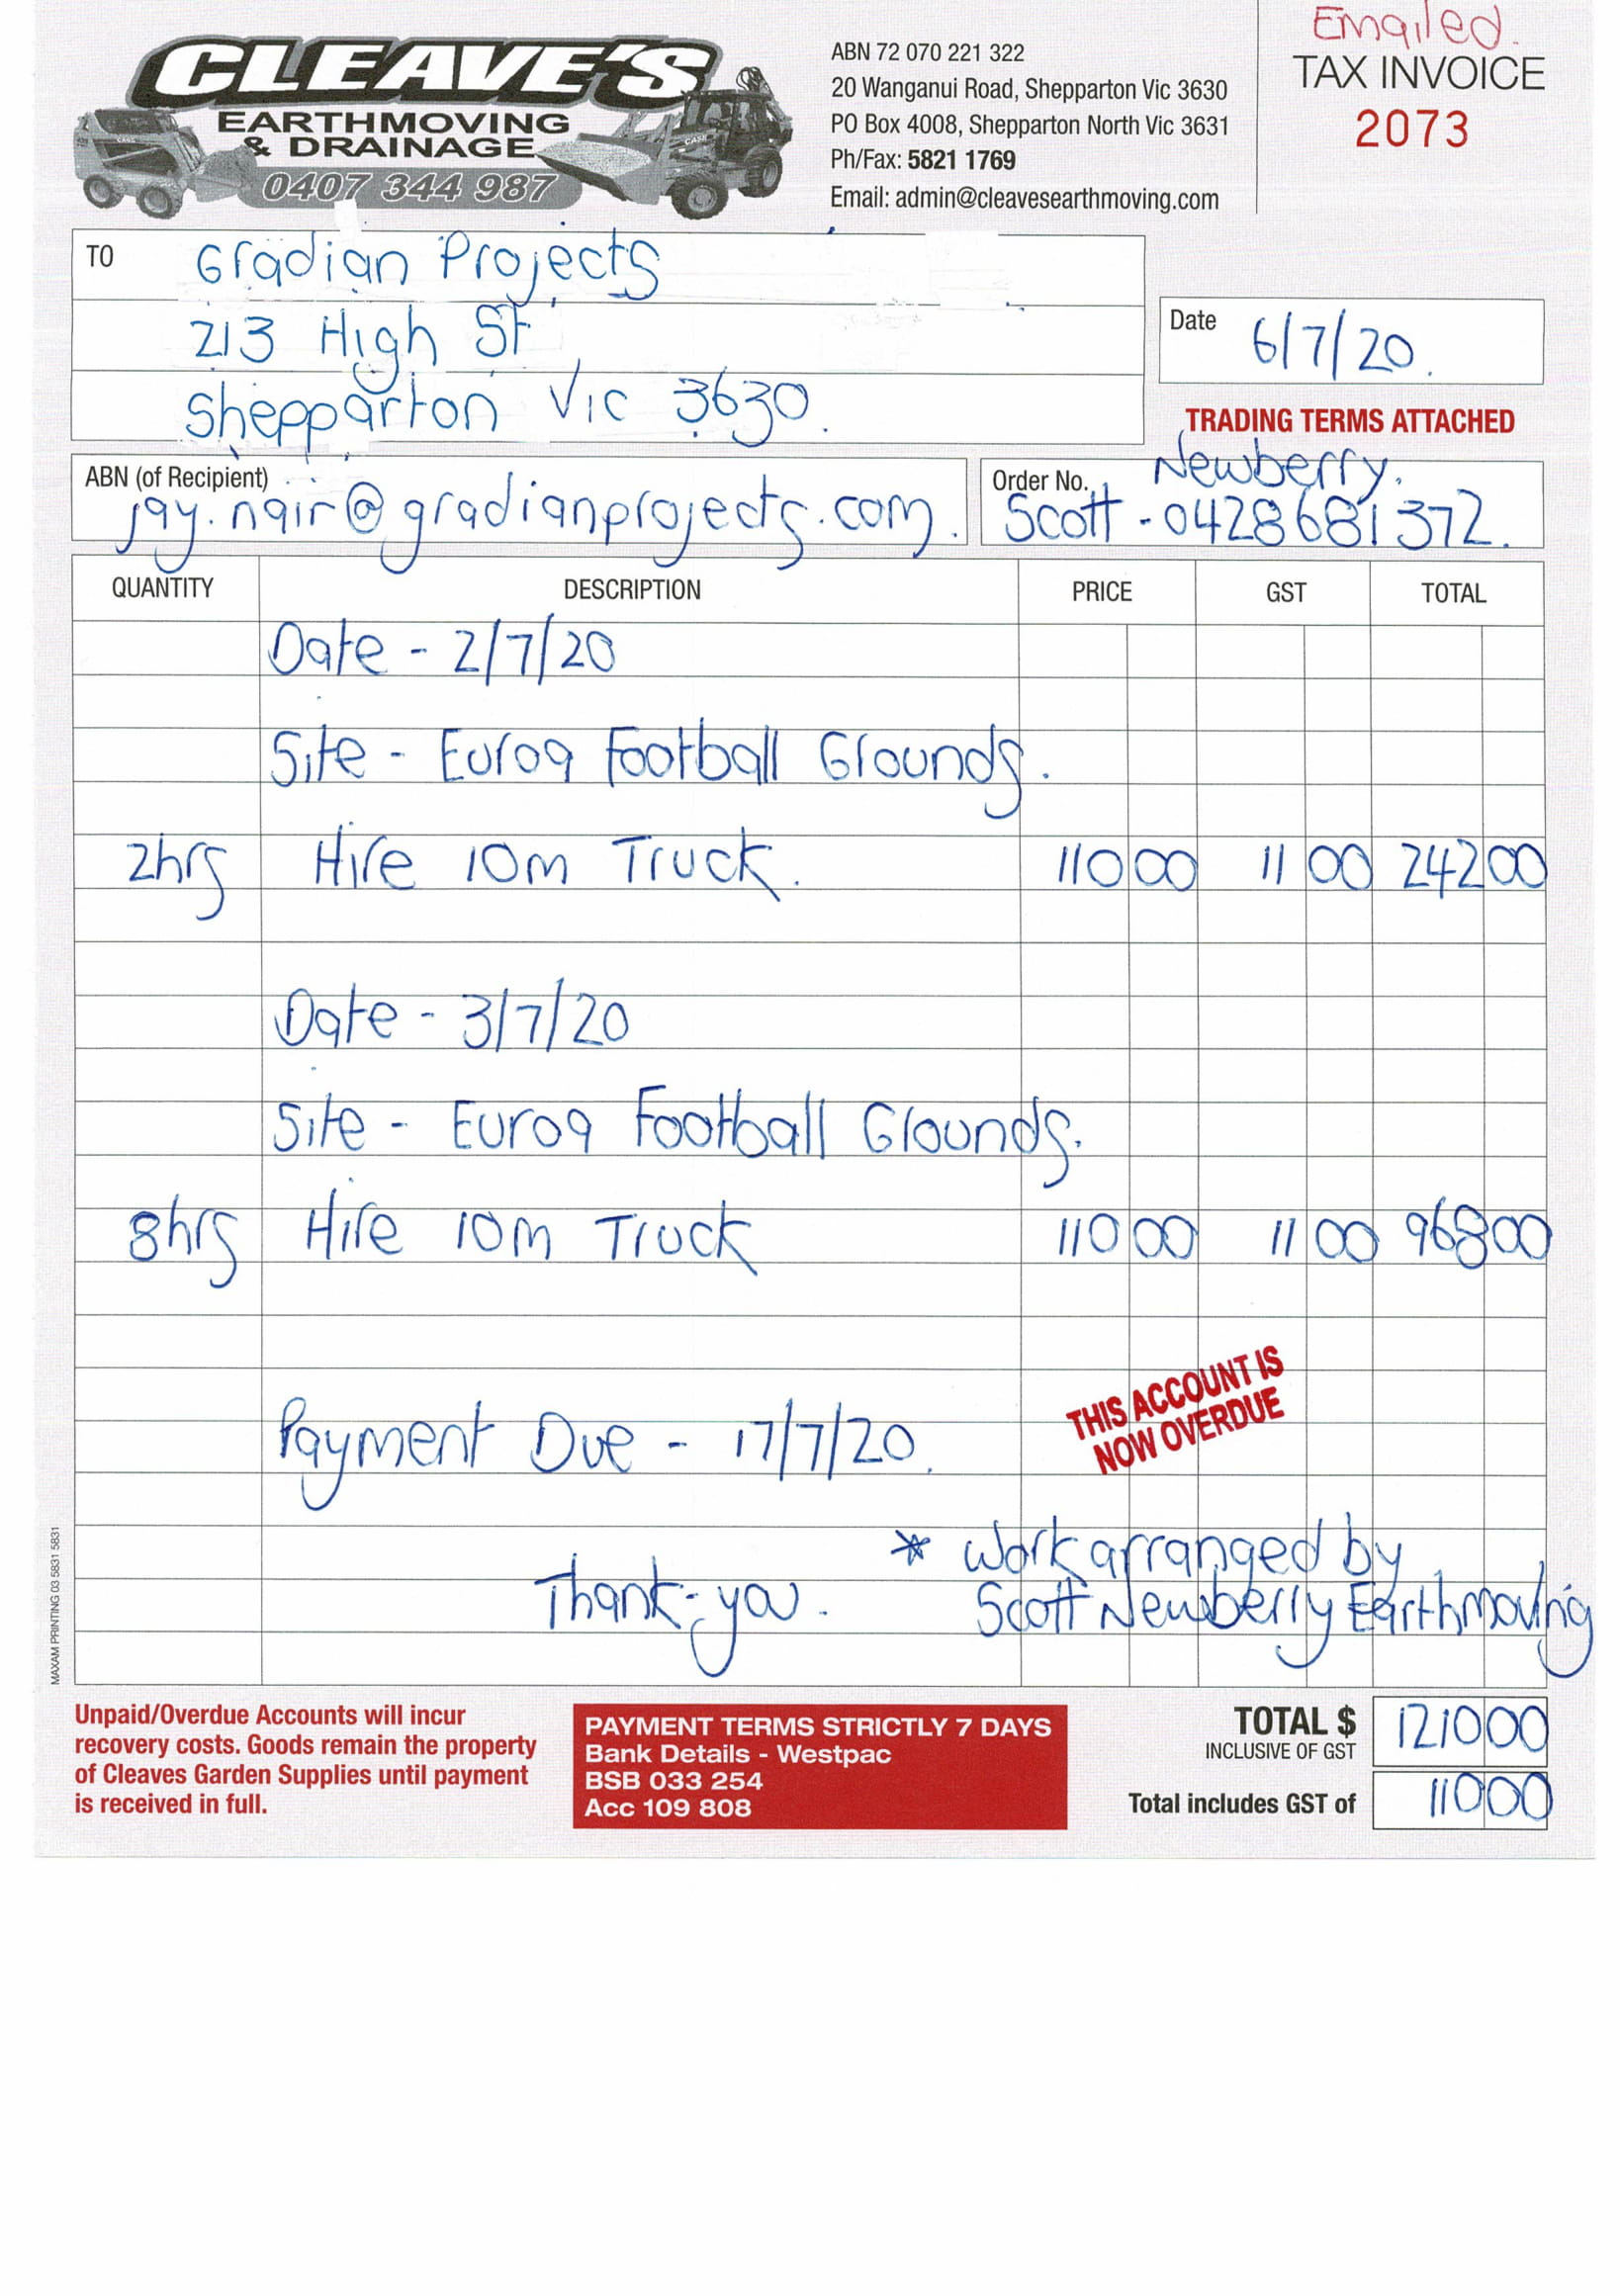 Emailed.
CLEAVE'S
EARTHMOVING
& DRAINAGE
0407 344 987
ABN 72 070 221 322
20 Wanganui Road, Shepparton Vic 3630
PO Box 4008, Shepparton North Vic 3631
Ph/Fax: 5821 1769
Email: admin@cleavesearthmoving.com
TAX INVOICE
2073
TO Gradian Projects
213 High St
Shepparton Vic 3630.
Date 6/7/20.
TRADING TERMS ATTACHED
ABN (of Recipient)
jay.nair@gradianprojects.com.
Order No. Newberry.
Scott - 0428681372.
QUANTITY DESCRIPTION PRICE GST TOTAL
Date - 2/7/20
Site - Euroa Football Grounds.
2hrs Hire 10m Truck. 110 00 11 00 242 00
Date - 3/7/20
Site - Euroa Football Grounds.
8hrs Hire 10m Truck 110 00 11 00 968 00
THIS ACCOUNT IS
NOW OVERDUE
Payment Due - 17/7/20.
* Work arranged by
Scott Newberry Earthmoving
Thank-you.
MAXAM PRINTING 03 5831 5831
Unpaid/Overdue Accounts will incur
recovery costs. Goods remain the property
of Cleaves Garden Supplies until payment
is received in full.
PAYMENT TERMS STRICTLY 7 DAYS
Bank Details - Westpac
BSB 033 254
Acc 109 808
TOTAL $ 1210 00
INCLUSIVE OF GST
Total includes GST of 110 00